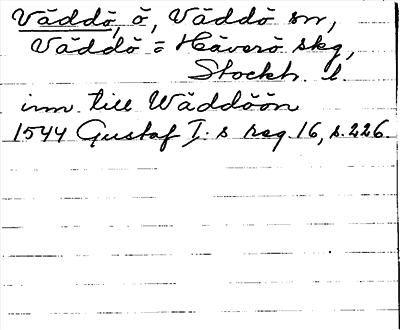 Väddö, ö, Väddö sn,
Väddö = Häverö skg,
Stockh. l.
inn till Wäddöön
1544 Gustaf I:s reg. 16, s. 226.